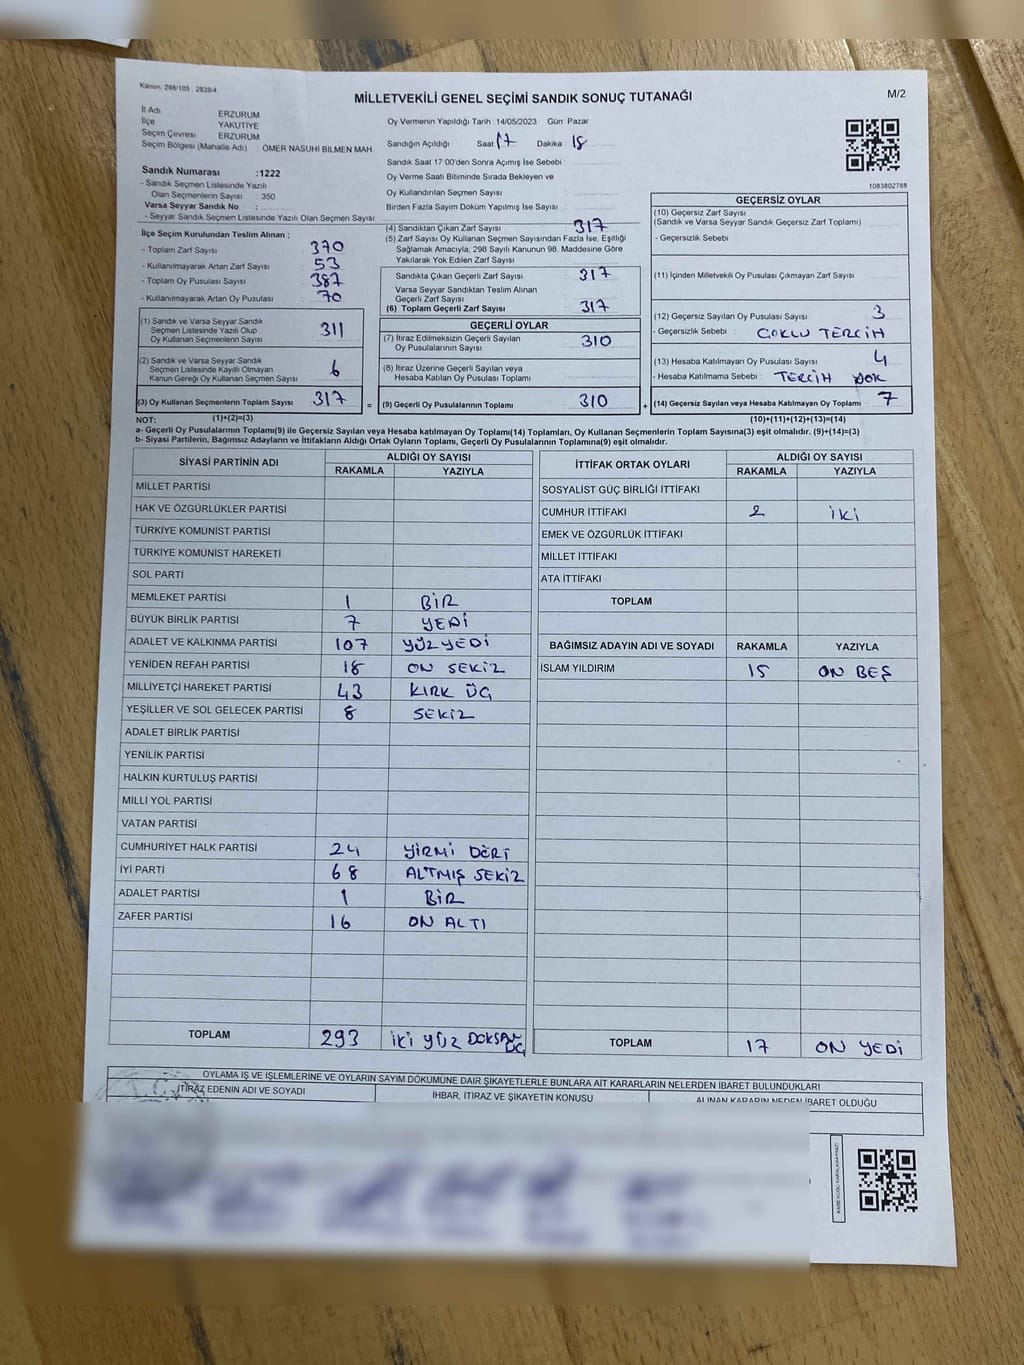 Kanun, 298/105 , 2839/4
MİLLETVEKİLİ GENEL SEÇİMİ SANDIK SONUÇ TUTANAĞI
M/2
İl Adı ERZURUM
İlçe YAKUTİYE
Seçim Çevresi ERZURUM
Seçim Bölgesi (Mahalle Adı) : ÖMER NASUHİ BİLMEN MAH
Sandık Numarası :1222
- Sandık Seçmen Listesinde Yazılı
Olan Seçmenlerin Sayısı 350
Varsa Seyyar Sandık No :
- Seyyar Sandık Seçmen Listesinde Yazılı Olan Seçmen Sayısı:
Oy Vermenin Yapıldığı Tarih :14/05/2023 Gün Pazar
Sandığın Açıldığı Saat 17 Dakika 18
Sandık Saat 17:00'den Sonra Açımış İse Sebebi
Oy Verme Saati Bitiminde Sırada Bekleyen ve
Oy Kullandırılan Seçmen Sayısı :
Birden Fazla Sayım Döküm Yapılmış İse Sayısı :
1083802788
İlçe Seçim Kurulundan Teslim Alınan ;
- Toplam Zarf Sayısı 370
- Kullanılmayarak Artan Zarf Sayısı 53
- Toplam Oy Pusulası Sayısı 387
- Kullanılmayarak Artan Oy Pusulası 70
(1) Sandık ve Varsa Seyyar Sandık
Seçmen Listesinde Yazılı Olup
Oy Kullanan Seçmenlerin Sayısı 311
(2) Sandık ve Varsa Seyyar Sandık
Seçmen Listesinde Kayıtlı Olmayan
Kanun Gereği Oy Kullanan Seçmen Sayısı 6
(3) Oy Kullanan Seçmenlerin Toplam Sayısı 317 =
(1)+(2)=(3)
(4) Sandıktan Çıkan Zarf Sayısı : 317
(5) Zarf Sayısı Oy Kullanan Seçmen Sayısından Fazla İse, Eşitliği
Sağlamak Amacıyla, 298 Sayılı Kanunun 98. Maddesine Göre
Yakılarak Yok Edilen Zarf Sayısı :
Sandıkta Çıkan Geçerli Zarf Sayısı : 317
Varsa Seyyar Sandıktan Teslim Alınan
Geçerli Zarf Sayısı
(6) Toplam Geçerli Zarf Sayısı : 317
GEÇERLİ OYLAR
(7) İtiraz Edilmeksizin Geçerli Sayılan
Oy Pusulalarının Sayısı : 310
(8) İtiraz Üzerine Geçerli Sayılan veya
Hesaba Katılan Oy Pusulası Toplamı :
(9) Geçerli Oy Pusulalarının Toplamı : 310 +
GEÇERSİZ OYLAR
(10) Geçersiz Zarf Sayısı
(Sandık ve Varsa Seyyar Sandık Geçersiz Zarf Toplamı)
- Geçersizlik Sebebi :
(11) İçinden Milletvekili Oy Pusulası Çıkmayan Zarf Sayısı
(12) Geçersiz Sayılan Oy Pusulası Sayısı 3
- Geçersizlik Sebebi : ÇOKLU TERCİH
(13) Hesaba Katılmayan Oy Pusulası Sayısı 4
- Hesaba Katılmama Sebebi : TERCİH YOK
(14) Geçersiz Sayılan veya Hesaba Katılmayan Oy Toplamı : 7
(10)+(11)+(12)+(13)=(14)
NOT:
a- Geçerli Oy Pusulalarının Toplamı(9) ile Geçersiz Sayılan veya Hesaba katılmayan Oy Toplamı(14) Toplamları, Oy Kullanan Seçmenlerin Toplam Sayısına(3) eşit olmalıdır. (9)+(14)=(3)
b- Siyasi Partilerin, Bağımsız Adayların ve İttifakların Aldığı Ortak Oyların Toplamı, Geçerli Oy Pusulalarının Toplamına(9) eşit olmalıdır.
SİYASİ PARTİNİN ADI ALDIĞI OY SAYISI
RAKAMLA YAZIYLA
MİLLET PARTİSİ
HAK VE ÖZGÜRLÜKLER PARTİSİ
TÜRKİYE KOMÜNİST PARTİSİ
TÜRKİYE KOMÜNİST HAREKETİ
SOL PARTİ
MEMLEKET PARTİSİ 1 BİR
BÜYÜK BİRLİK PARTİSİ 7 YEDİ
ADALET VE KALKINMA PARTİSİ 107 YÜZ YEDİ
YENİDEN REFAH PARTİSİ 18 ON SEKİZ
MİLLİYETÇİ HAREKET PARTİSİ 43 KIRK ÜÇ
YEŞİLLER VE SOL GELECEK PARTİSİ 8 SEKİZ
ADALET BİRLİK PARTİSİ
YENİLİK PARTİSİ
HALKIN KURTULUŞ PARTİSİ
MİLLİ YOL PARTİSİ
VATAN PARTİSİ
CUMHURİYET HALK PARTİSİ 24 YİRMİ DÖRT
İYİ PARTİ 68 ALTMIŞ SEKİZ
ADALET PARTİSİ 1 BİR
ZAFER PARTİSİ 16 ON ALTI
TOPLAM 293 İKİ YÜZ DOKSAN ÜÇ
İTTİFAK ORTAK OYLARI ALDIĞI OY SAYISI
RAKAMLA YAZIYLA
SOSYALİST GÜÇ BİRLİĞİ İTTİFAKI
CUMHUR İTTİFAKI 2 İKİ
EMEK VE ÖZGÜRLÜK İTTİFAKI
MİLLET İTTİFAKI
ATA İTTİFAKI
TOPLAM
BAĞIMSIZ ADAYIN ADI VE SOYADI RAKAMLA YAZIYLA
İSLAM YILDIRIM 15 ON BEŞ
TOPLAM 17 ON YEDİ
OYLAMA İŞ VE İŞLEMLERİNE VE OYLARIN SAYIM DÖKÜMÜNE DAİR ŞİKAYETLERLE BUNLARA AİT KARARLARIN NELERDEN İBARET BULUNDUKLARI
İTİRAZ EDENİN ADI VE SOYADI İHBAR, İTİRAZ VE ŞİKAYETİN KONUSU ALINAN KARARIN NEDEN İBARET OLDUĞU